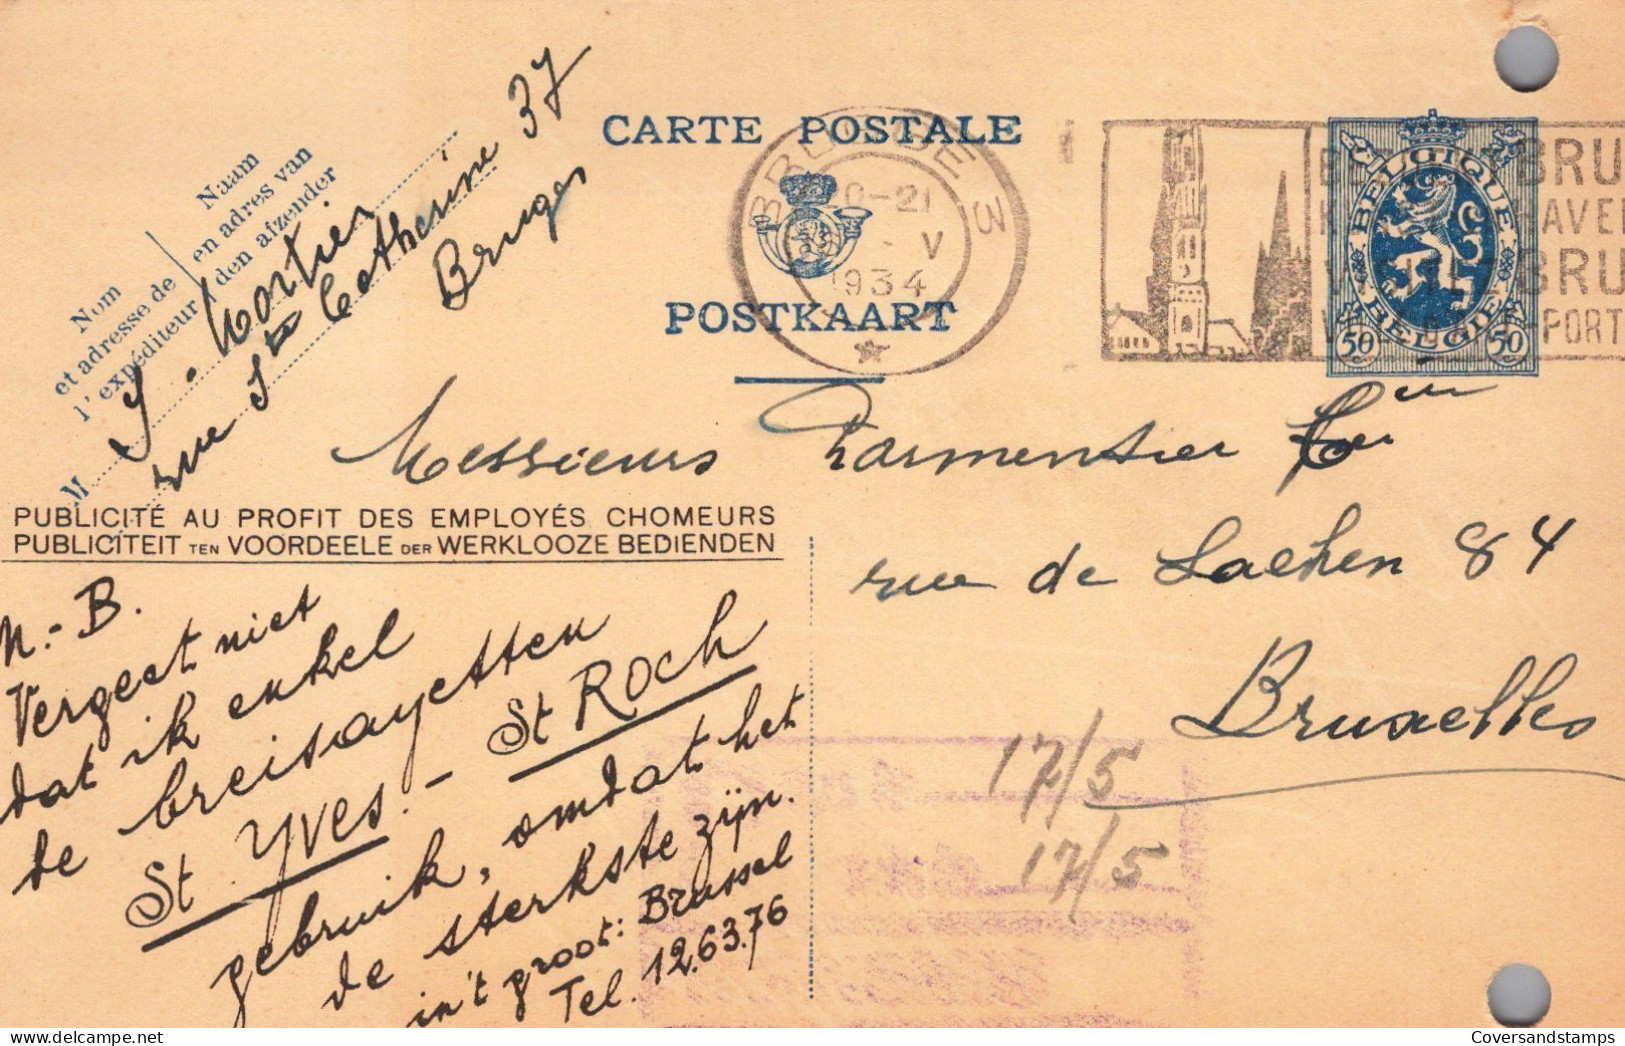 CARTE POSTALE
POSTKAART
Naam
en adres van
den afzender
Nom
et adresse de
l'expéditeur
M
J. Mortier
rue Ste Catherine 37
Bruges
BRUGGE 3
20-21
V
1934
BRU
BRU
PORT
BELGIQUE
BELGIË
50 50
Messieurs Parmentier
rue de Laeken 84
Bruxelles
17/5
17/5
PUBLICITÉ AU PROFIT DES EMPLOYÉS CHOMEURS
PUBLICITEIT TEN VOORDEELE DER WERKLOOZE BEDIENDEN
N.-B.
Vergeet niet
dat ik enkel
de breisayetten
St YVES - St ROCH
gebruik, omdat het
de sterkste zijn.
in't groot: Brussel
Tel. 12.63.76
Coversandstamps